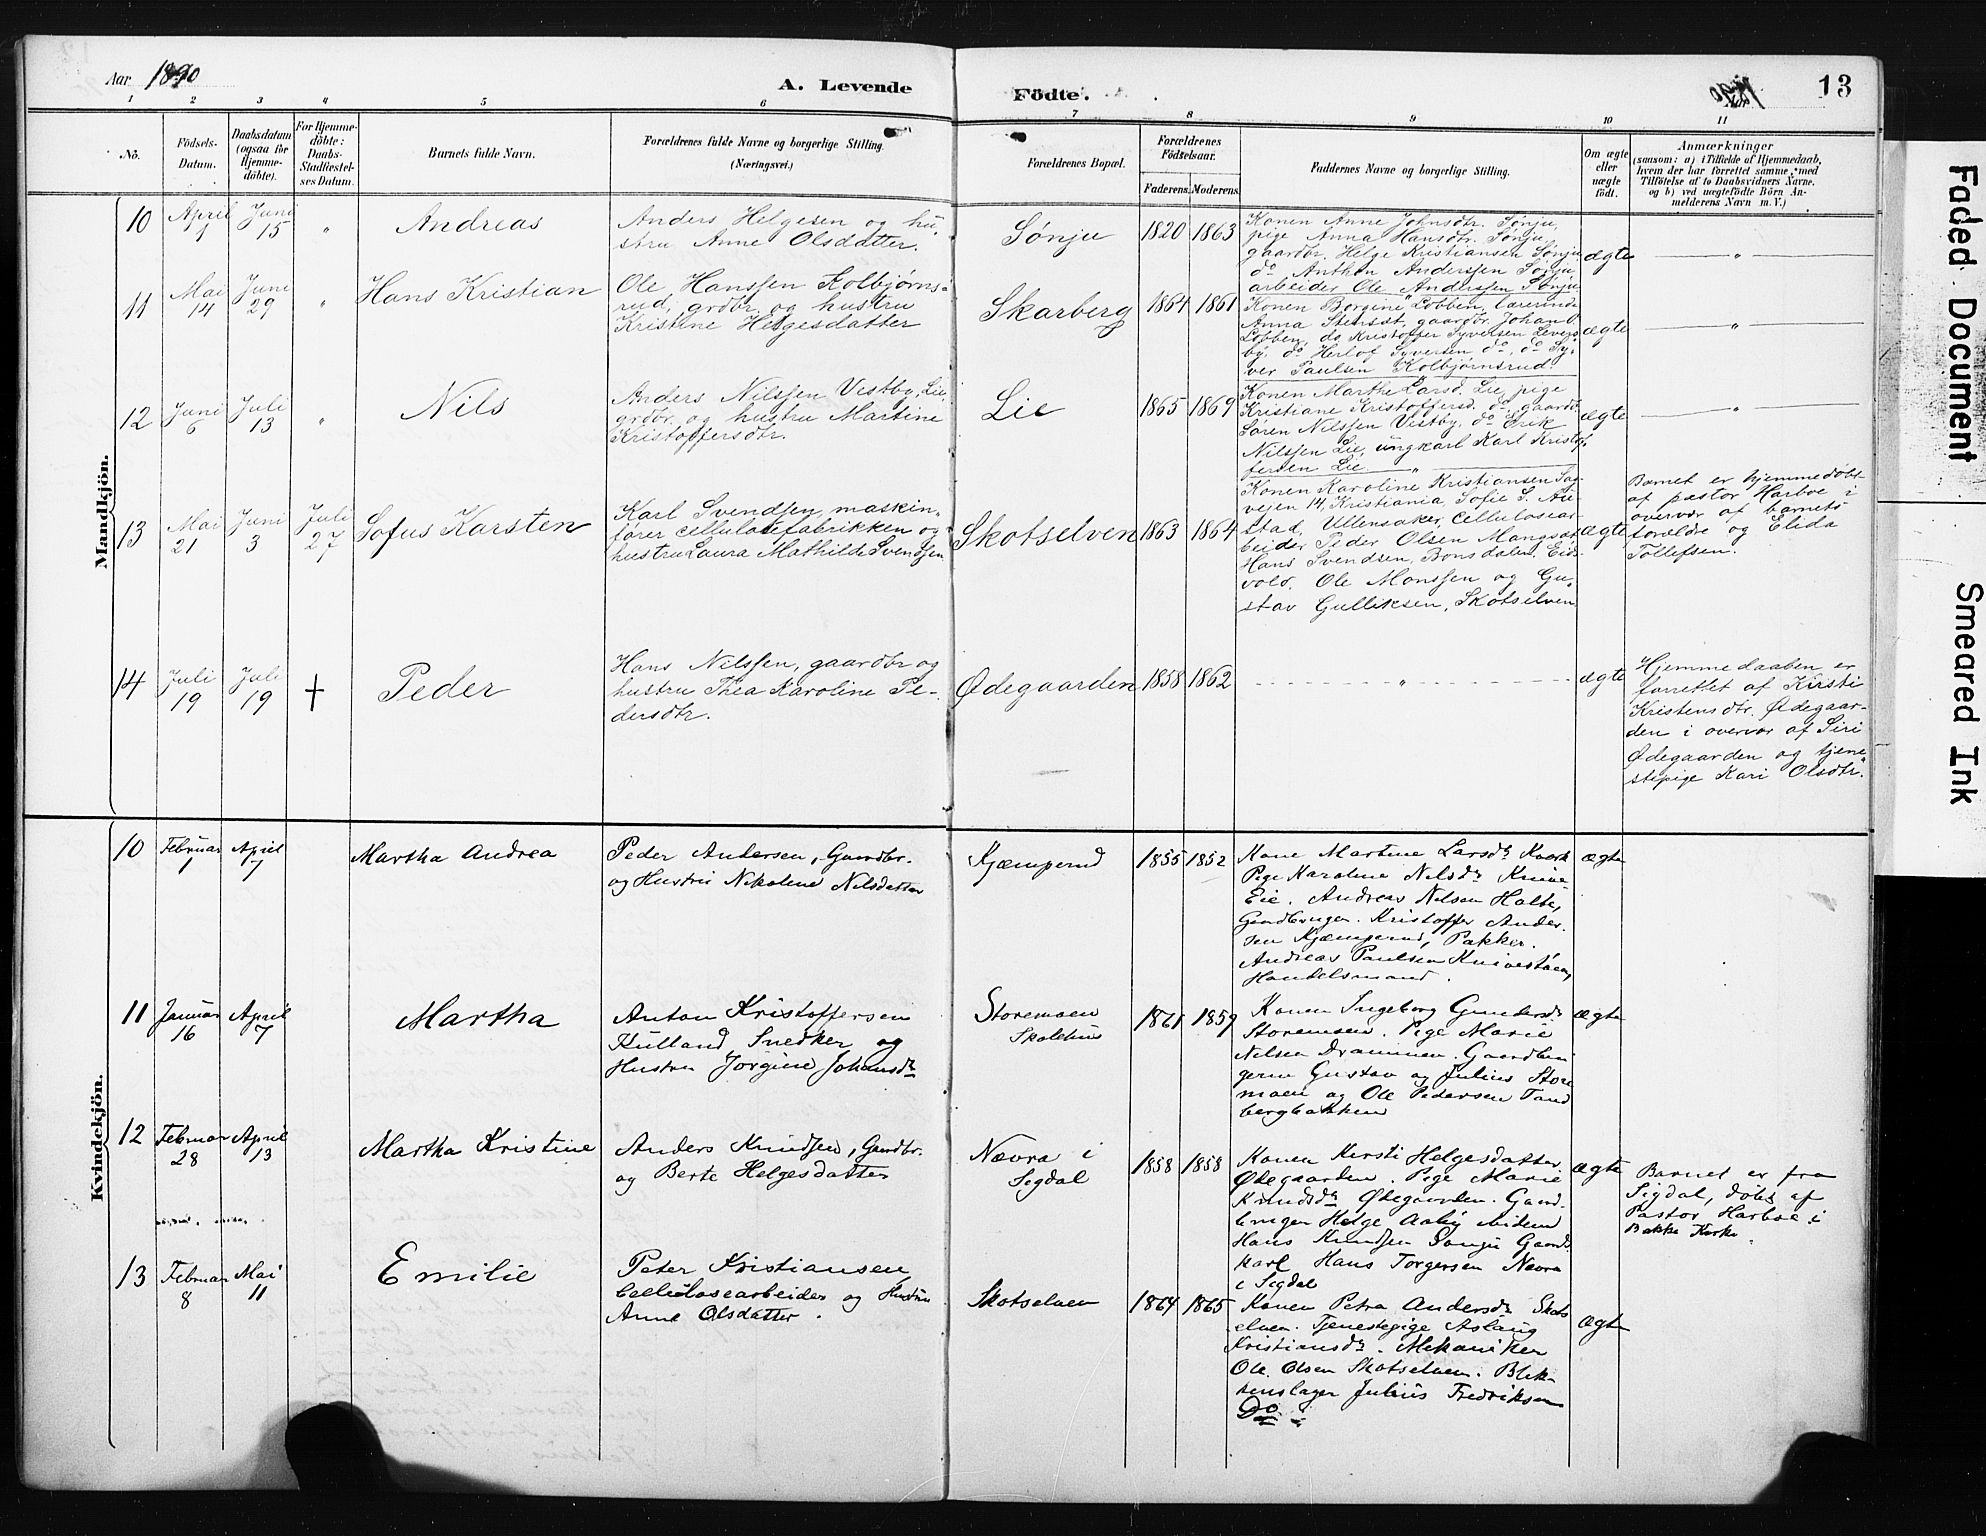 Aar 1890
A. Levende Födte.
1890
13
1 2 3 4 5 6 7 8 9 10 11
No.
Födsels-
Datum.
Daabsdatum
(ogsaa for
Hjemme-
döbte).
For Hjemme-
döbte:
Daabs-
Stadfæstel-
ses Datum.
Barnets fulde Navn.
Forældrenes fulde Navne og borgerlige Stilling.
(Næringsvei.)
Forældrenes Bopæl.
Forældrenes
Födselsaar.
Faderens. Moderens.
Faddernes Navne og borgerlige Stilling.
Om ægte
eller
uægte
født.
Anmærkninger
(saasom: a) i Tilfælde af Hjemmedaab,
hvem der har forrettet samme, med
Tilföielse af to Daabsvidners Navne,
og b) ved uægtefödte Börn An-
melderens Navn m. V.)
Mandkjön.
10
April
1
Juni
15
"
Andreas
Anders Helgesen og hu-
stru Anne Olsdatter.
Sønju
1820 1863
Konen Anne Johnsdtr. Sønju,
pige Anna Hansdtr. Sønju,
gaardbr. Helge Kristiansen Sønju
do Anthon Anderssen Sønju,
arbeider Ole Anderssen Sønju
ægte
"
11
Mai
14
Juni
29
"
Hans Kristian
Ole Hanssen Kolbjørns-
rud, grdbr. og hustru
Kristine Helgesdatter
Skarberg
1864 1861
Konen Borgine Lobben, lærerinde
Anna Stensst, gaardbr. Johan O.
Lobben, do Kristoffer Syversen Levers-
by, do Herlof Syversen do, do Sy-
ver Paulsen Kolbjørnsrud.
ægte
"
12
Juni
6
Juli
13
"
Nils
Anders Nilssen Vestby, Lie,
grdbr. og hustru Martine
Kristoffersdtr.
Lie
1865 1869
Konen Marthe Larsd. Lie, pige
Kristiane Kristoffersd. do, gaardb.
Søren Nilssen Vestby, do Erik
Nilssen Lie, ungkarl Karl Kristof-
fersen Lie
ægte
"
13
Mai
21
Juni
3
Juli
27
Sofus Karsten
Karl Svendsen, maskin-
fører cellulosefabrikken og
hustru Laura Mathilde Svendsen
Skotselven
1863 1864
Konen Karoline Kristiansen Sag-
vejen 14, Kristiania, Sofie S. Au-
stad, Ullensaker, cellulosear-
beider Peder Olsen Mangsat
Hans Svendsen, Bonsdalen, Eids-
vold, Ole Monssen og Gu-
stav Gulliksen, Skotselven
ægte
Barnet er hjemmedøbt
af pastor Harboe i
overvær af barnets
foreldre og Elida
Tollefsen.
14
Juli
19
Juli
19
†
Peder
Hans Nilssen, gaardbr og
hustru Thea Karoline Pe-
dersdtr.
Ødegaarden
1858 1862
"
ægte
Hjemmedaaben er
forrettet af Kirsti
Kristensdtr. Ødegaar-
den i overvær af Siri
Ødegaarden og tjene-
stepige Kari Olsdtr.
Kvindekjön.
10
Februar
1
April
7
Martha Andrea
Peder Andersen, Gaardbr.
og Hustru Nikoline Nilsdatter
Kjæmperud
1855 1852
Kone Martine Larsdr Kvark
Pige Karoline Nilsdr Knive-
Eie. Andreas Nilsen Holte,
Gaardbruger. Kristoffer Ander-
sen Kjæmperud, Pakker.
Andreas Paulsen Kniveståen,
Handelsmand.
ægte
11
Januar
16
April
7
Martha
Anton Kristoffersen
Hulland Snedker og
Hustru Jørgine Johansdr
Storemoen
Skolehus
1861 1859
Konen Ingeborg Gundersdr
Storemoen. Pige Marie
Nilsen Drammen. Gaardbru-
gerne Gustav og Julius Store
moen og Ole Pedersen Tand
bergbakken
ægte
12
Februar
28
April
13
Martha Kristine
Anders Knudsen, Gaardbr.
og Berte Helgesdatter
Nævra i
Sigdal
1858 1858
Konen Kersti Helgesdatter
Ødegaarden. Pige Marie
Knudsdr Ødegaarden. Gaard-
bruger Helge Aaby
Hans Knudsen Sønju Gaard-
karl Hans Torgersen Nævra
i Sigdal
ægte
Barnet er fra
Sigdal, døbt af
Pastor Harboe i
Bakke Kirke.
13
Februar
8
Mai
11
Emilie
Peter Kristiansen,
Cellulosearbeider og Hustru
Anne Olsdatter.
Skotselven
1864 1865
Konen Petra Andersdr Skots
elven. Tjenestepige Aslaug
Kristiansdr. Mekaniker
Ole Olsen Skotselven. Blik-
kenslager Julius Fredriksen
Do
ægte
Faded Document
Smeared Ink